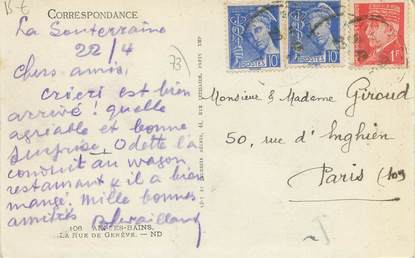 CORRESPONDANCE
La Souterraine
22/4
Chers amis,
cricri est bien
arrivé ! quelle
agréable et bonne
surprise, Odette l'a
conduit au wagon
restaurant & il a bien
mangé. Mille bonnes
amitiés
106 AIX-LES-BAINS.
LA RUE DE GENÈVE. — ND
73
POSTES 10
POSTES 10
1F
Monsieur & Madame Giroud
50, rue d'Enghien
Paris (10e)